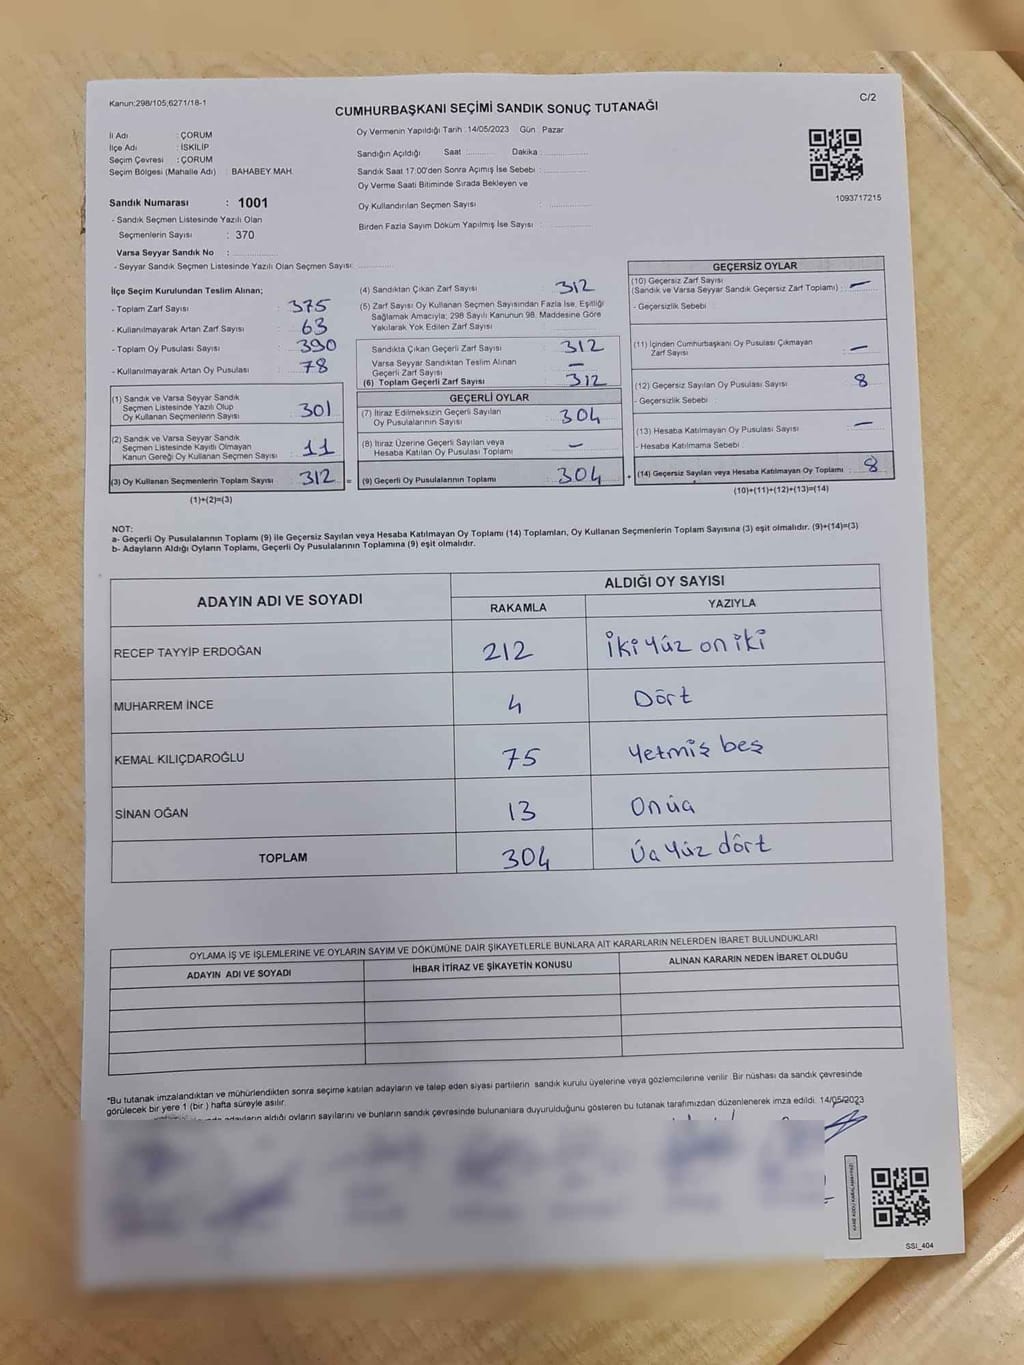 Kanun:298/105;6271/18-1
C/2
CUMHURBAŞKANI SEÇİMİ SANDIK SONUÇ TUTANAĞI
İl Adı : ÇORUM
İlçe Adı : İSKİLİP
Seçim Çevresi : ÇORUM
Seçim Bölgesi (Mahalle Adı) : BAHABEY MAH.
Sandık Numarası : 1001
- Sandık Seçmen Listesinde Yazılı Olan
Seçmenlerin Sayısı : 370
Varsa Seyyar Sandık No : ...............
- Seyyar Sandık Seçmen Listesinde Yazılı Olan Seçmen Sayısı: ............
Oy Vermenin Yapıldığı Tarih : 14/05/2023 Gün : Pazar
Sandığın Açıldığı Saat :.......... Dakika : ...............
Sandık Saat 17:00'den Sonra Açımış İse Sebebi : ...............
Oy Verme Saati Bitiminde Sırada Bekleyen ve
Oy Kullandırılan Seçmen Sayısı : ...............
Birden Fazla Sayım Döküm Yapılmış İse Sayısı : ...............
1093717215
İlçe Seçim Kurulundan Teslim Alınan;
- Toplam Zarf Sayısı : 375
- Kullanılmayarak Artan Zarf Sayısı : 63
- Toplam Oy Pusulası Sayısı : 390
- Kullanılmayarak Artan Oy Pusulası : 78
(1) Sandık ve Varsa Seyyar Sandık
Seçmen Listesinde Yazılı Olup
Oy Kullanan Seçmenlerin Sayısı : 301
(2) Sandık ve Varsa Seyyar Sandık
Seçmen Listesinde Kayıtlı Olmayan
Kanun Gereği Oy Kullanan Seçmen Sayısı : 11
(3) Oy Kullanan Seçmenlerin Toplam Sayısı : 312 =
(1)+(2)=(3)
(4) Sandıktan Çıkan Zarf Sayısı : 312
(5) Zarf Sayısı Oy Kullanan Seçmen Sayısından Fazla İse, Eşitliği
Sağlamak Amacıyla; 298 Sayılı Kanunun 98. Maddesine Göre
Yakılarak Yok Edilen Zarf Sayısı : ............
Sandıkta Çıkan Geçerli Zarf Sayısı : 312
Varsa Seyyar Sandıktan Teslim Alınan
Geçerli Zarf Sayısı : —
(6) Toplam Geçerli Zarf Sayısı : 312
GEÇERLİ OYLAR
(7) İtiraz Edilmeksizin Geçerli Sayılan
Oy Pusulalarının Sayısı : 304
(8) İtiraz Üzerine Geçerli Sayılan veya
Hesaba Katılan Oy Pusulası Toplamı : —
(9) Geçerli Oy Pusulalarının Toplamı : 304 +
GEÇERSİZ OYLAR
(10) Geçersiz Zarf Sayısı
(Sandık ve Varsa Seyyar Sandık Geçersiz Zarf Toplamı) : —
- Geçersizlik Sebebi :
(11) İçinden Cumhurbaşkanı Oy Pusulası Çıkmayan
Zarf Sayısı : —
(12) Geçersiz Sayılan Oy Pusulası Sayısı : 8
- Geçersizlik Sebebi :
(13) Hesaba Katılmayan Oy Pusulası Sayısı : —
- Hesaba Katılmama Sebebi :
(14) Geçersiz Sayılan veya Hesaba Katılmayan Oy Toplamı : 8
(10)+(11)+(12)+(13)=(14)
NOT:
a- Geçerli Oy Pusulalarının Toplamı (9) ile Geçersiz Sayılan veya Hesaba Katılmayan Oy Toplamı (14) Toplamları, Oy Kullanan Seçmenlerin Toplam Sayısına (3) eşit olmalıdır. (9)+(14)=(3)
b- Adayların Aldığı Oyların Toplamı, Geçerli Oy Pusulalarının Toplamına (9) eşit olmalıdır.
ADAYIN ADI VE SOYADI
ALDIĞI OY SAYISI
RAKAMLA YAZIYLA
RECEP TAYYİP ERDOĞAN 212 İki yüz on iki
MUHARREM İNCE 4 Dört
KEMAL KILIÇDAROĞLU 75 Yetmiş beş
SİNAN OĞAN 13 On üç
TOPLAM 304 Üç yüz dört
OYLAMA İŞ VE İŞLEMLERİNE VE OYLARIN SAYIM VE DÖKÜMÜNE DAİR ŞİKAYETLERLE BUNLARA AİT KARARLARIN NELERDEN İBARET BULUNDUKLARI
ADAYIN ADI VE SOYADI İHBAR İTİRAZ VE ŞİKAYETİN KONUSU ALINAN KARARIN NEDEN İBARET OLDUĞU
*Bu tutanak imzalandıktan ve mühürlendikten sonra seçime katılan adayların ve talep eden siyasi partilerin sandık kurulu üyelerine veya gözlemcilerine verilir. Bir nüshası da sandık çevresinde
görülecek bir yere 1 (bir) hafta süreyle asılır.
adayların aldığı oyların sayılarını ve bunların sandık çevresinde bulunanlara duyurulduğunu gösteren bu tutanak tarafımızdan düzenlenerek imza edildi. 14/05/2023
SSI_404